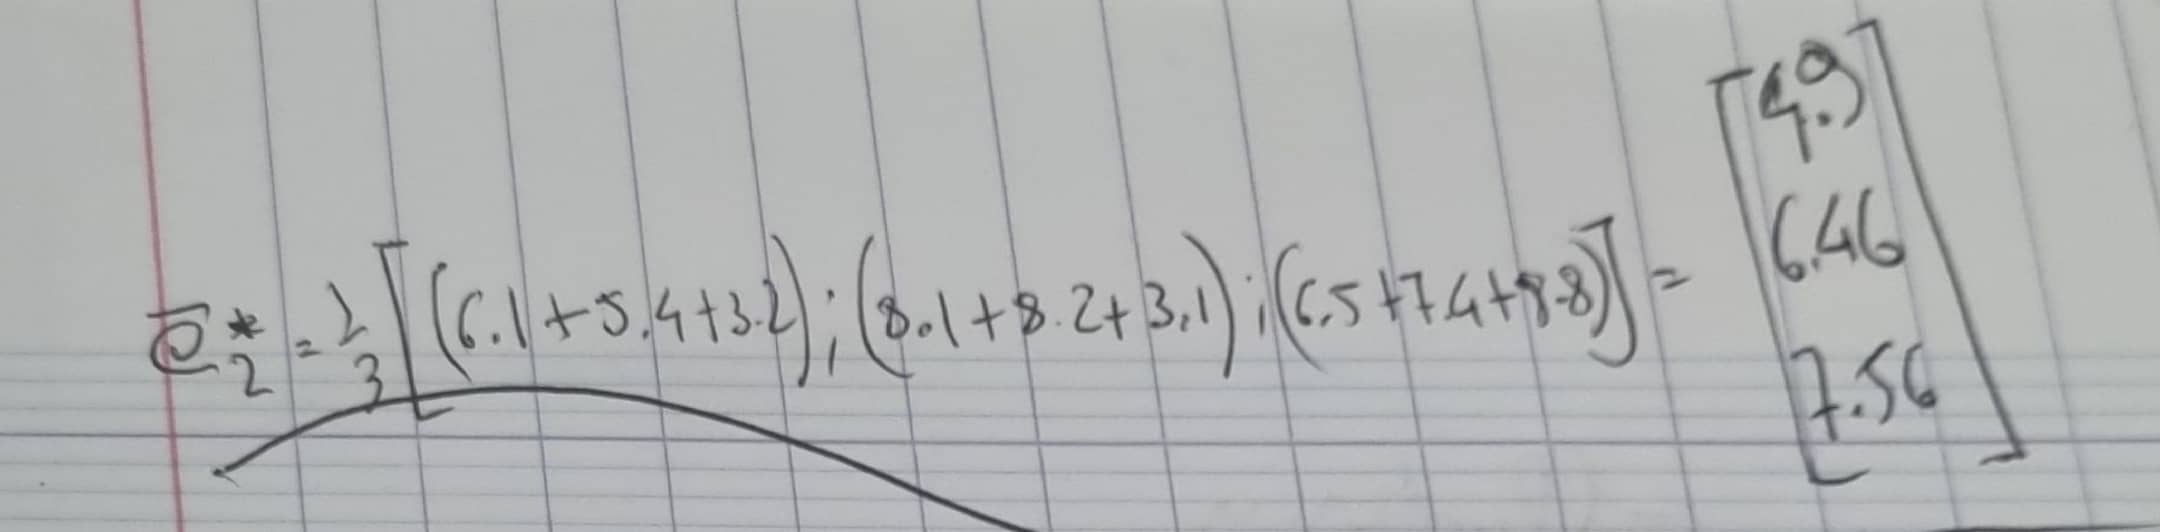 ē*₂ = 1/3 [(6.1+5.4+3.2); (8.1+8.2+3.1); (6.5+7.4+8.8)] = [4.9
6.46
7.56]